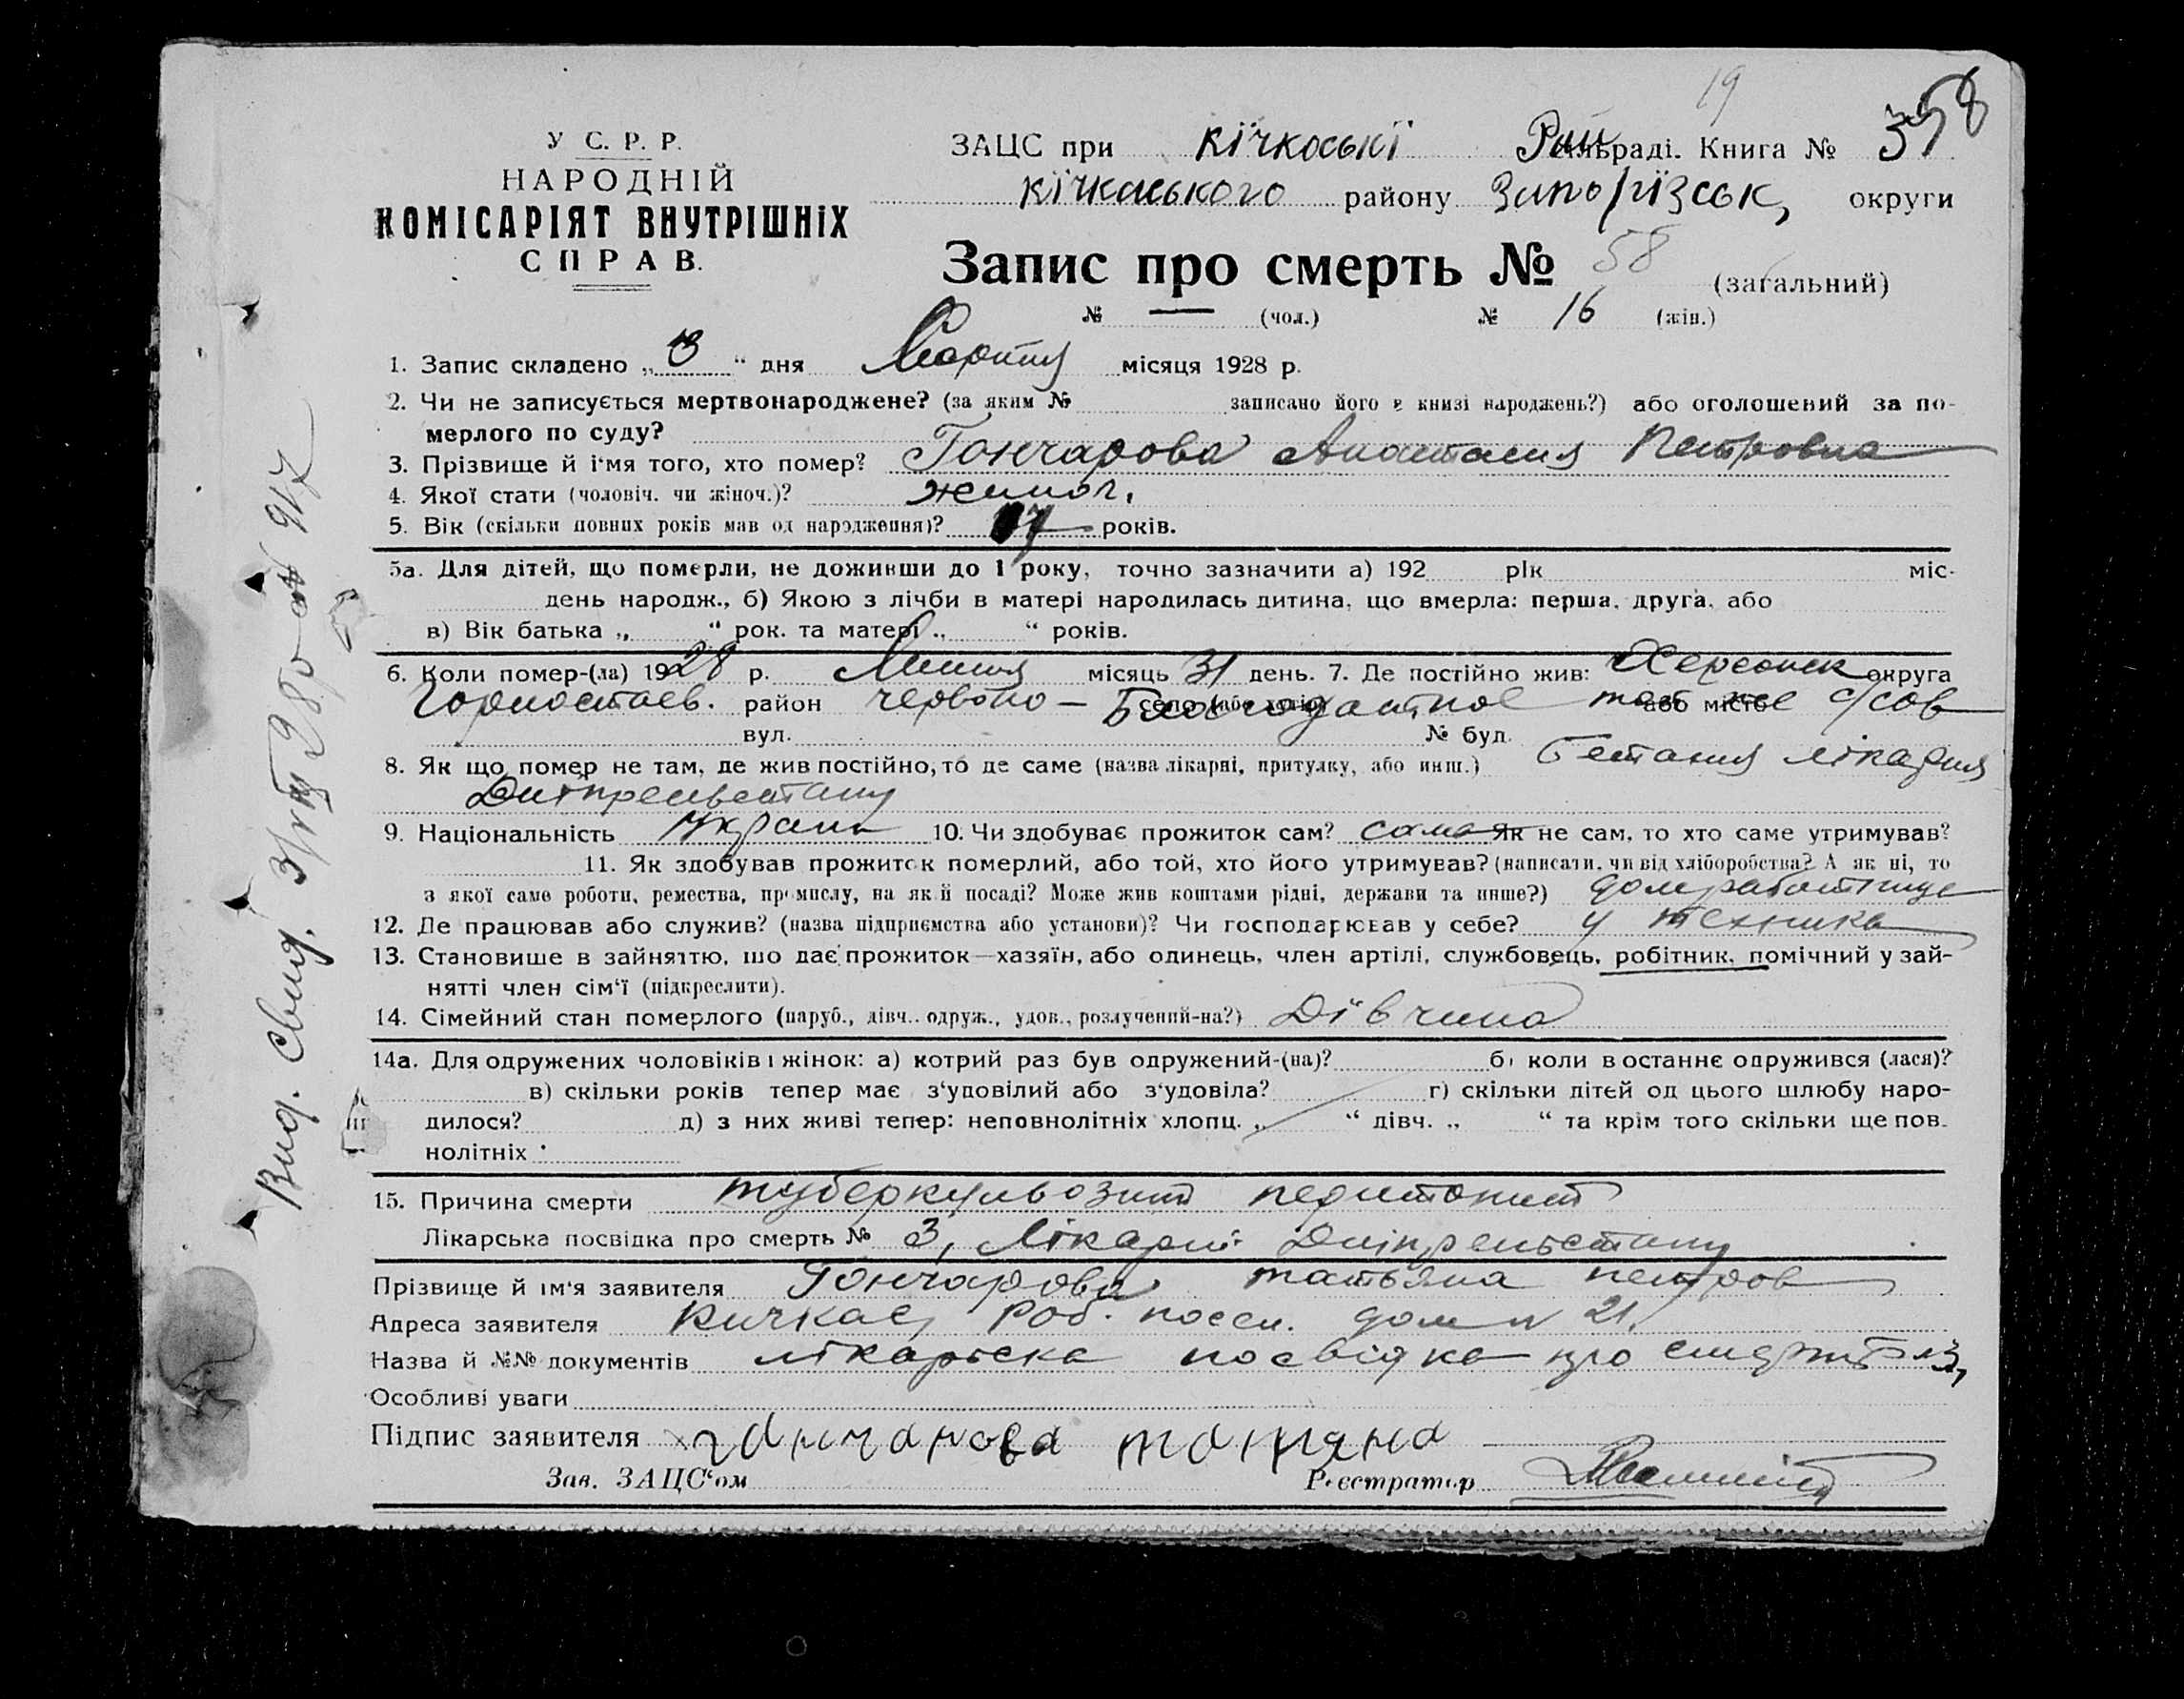 19
358
У С. Р. Р.
НАРОДНІЙ
КОМІСАРІЯТ ВНУТРІШНІХ
СПРАВ.
ЗАЦС при Кічкоські Рай сільраді. Книга №
Кічкаського району Запорізськ, округи
Запис про смерть № 58 (загальний)
№ — (чол.) № 16 (жін.)
1. Запис складено „ “ дня місяця 1928 р.
2. Чи не записується мертвонароджене? (за яким № записано його в книзі народжень?) або оголошений за по-
мерлого по суду?
3. Прізвище й і'мя того, хто помер? Гончарова Анастасия Петровна
4. Якої стати (чоловіч. чи жіноч.)? жиноч.
5. Вік (скільки повних років мав од народження)? 17 років.
5а. Для дітей, що померли, не доживши до 1 року, точно зазначити а) 192 рік міс-
день народж., б) Якою з лічби в матері народилась дитина, що вмерла: перша, друга, або
в) Вік батька „ “ рок. та матері „ “ років.
6. Коли помер-(ла) 1928 р. місяць 31 день. 7. Де постійно жив: Херсонск округа
Горностаев. район Червоно - село (або хутір) Благодатное або місто тож с/сов
вул. № буд.
8. Як що помер не там, де жив постійно, то де саме (назва лікарні, притулку, або инш.) лікарня
Дніпрельстану
9. Національність Украин 10. Чи здобуває прожиток сам? сама Як не сам, то хто саме утримував?
11. Як здобував прожиток померлий, або той, хто його утримував? (написати, чи від хліборобства? А як ні, то
з якої саме роботи, ремества, промислу, на якій посаді? Може жив коштами рідні, держави та инше?) домработница
12. Де працював або служив? (назва підприємства або установи)? Чи господарював у себе? у техника
13. Становище в зайняттю, що дає прожиток—хазяїн, або одинець, член артілі, службовець, робітник, помічний у зай-
нятті член сім'ї (підкреслити).
14. Сімейний стан померлого (паруб., дівч., одруж., удов., розлучений-на?) Дівчина
14а. Для одружених чоловіків і жінок: а) котрий раз був одружений-(на)? б) коли востаннє одружився (лася)?
в) скільки років тепер має з'удовілий або з'удовіла? г) скільки дітей од цього шлюбу наро-
дилося? д) з них живі тепер: неповнолітніх хлопц. „ “ дівч. „ “ та крім того скільки ще пов.
нолітніх
15. Причина смерти туберкульозний перитонит
Лікарська посвідка про смерть № 3, Лікарні Дніпрельстану
Прізвище й ім'я заявителя Гончарова Татьяна Петров
Адреса заявителя Кичкас, Роб. посел. дом № 21.
Назва й №№ документів лікарска посвідка про смерть №3,
Особливі уваги
Підпис заявителя Ганчарова Татяна
Зав. ЗАЦС'ом Реєстратор
Вид. Свид.